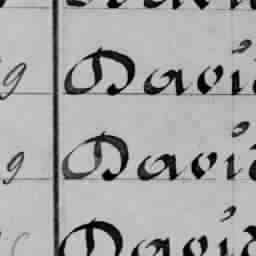 9 David
9 David
David